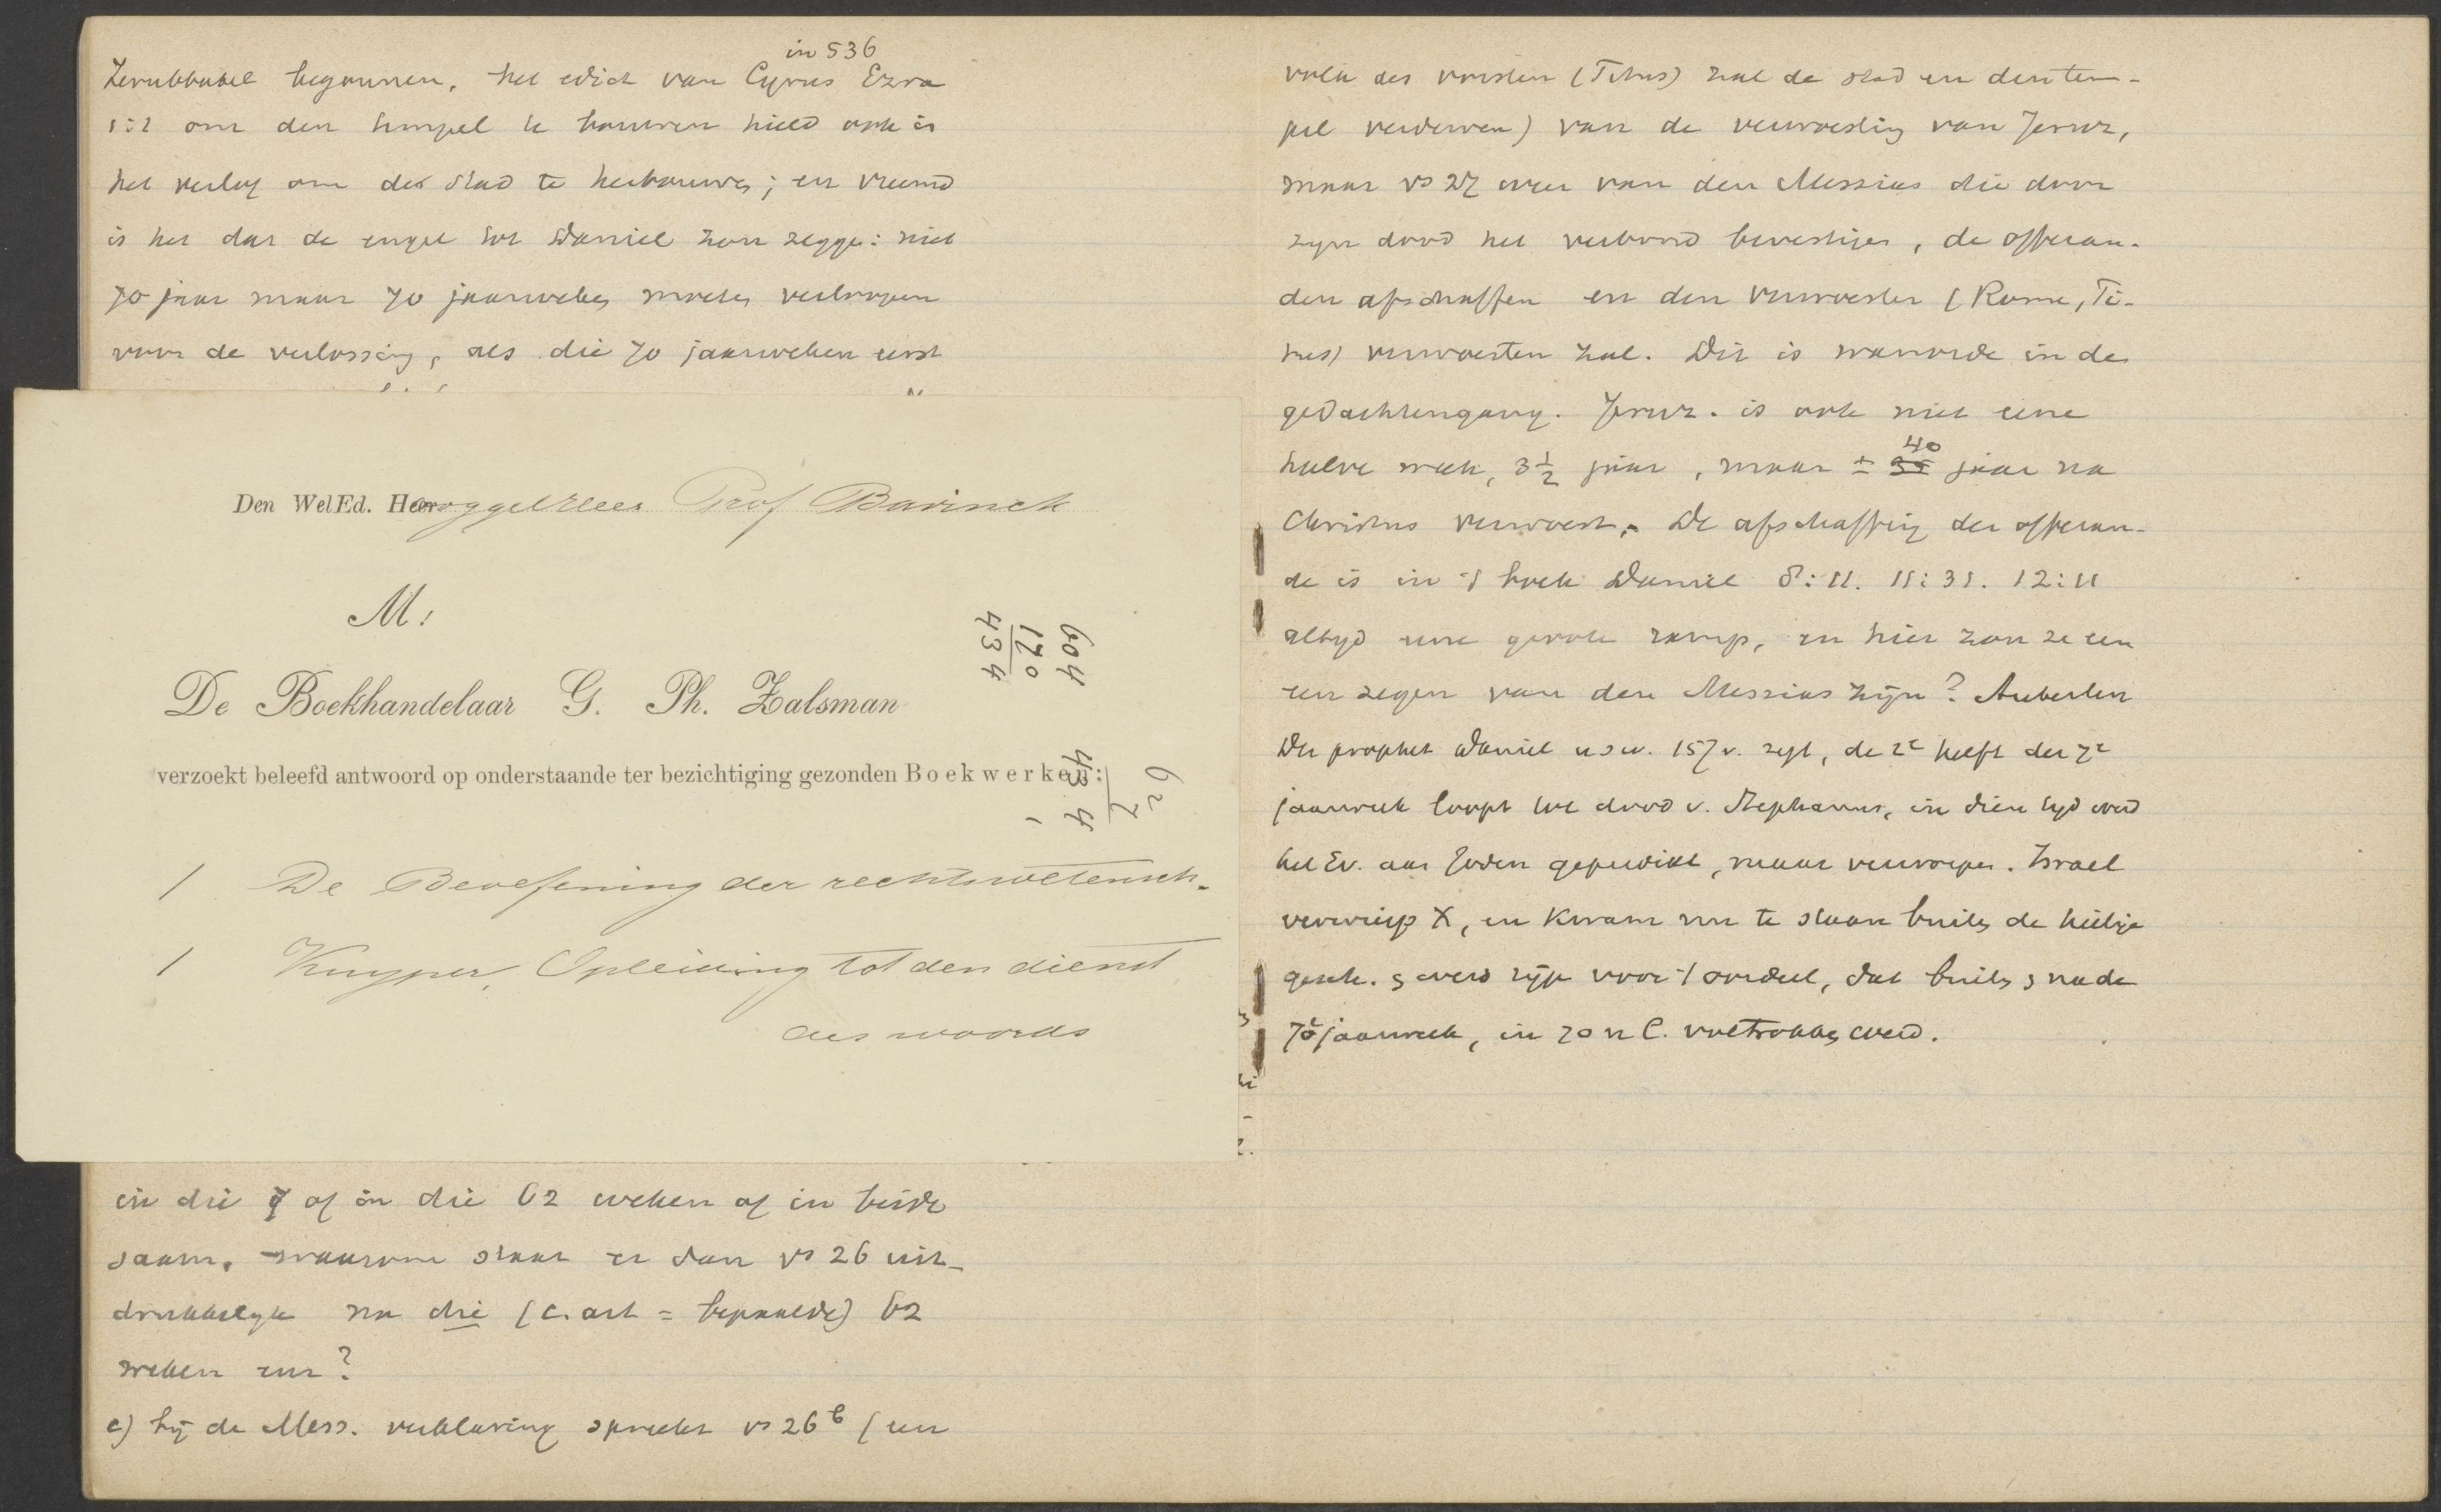 in 536
Zerubbabel begonnen. het edict van Cyrus Ezra
1:2 om den tempel te bouwen hield ook in
het verlof om de stad te herbouwen; en vreemd
is het dat de engel tot Daniel zou zeggen: niet
70 jaar maar 70 jaarweken moeten verloopen
voor de verlossing, als die 70 jaarweken eerst
Den WelEd. Heer Prof Bavinck
M:
De Boekhandelaar G. Ph. Zalsman
verzoekt beleefd antwoord op onderstaande ter bezichtiging gezonden Boekwerken:
1 De Beoefening der rechtswetensch.
1 Kuyper, Opleiding tot den dienst
des woords
604
170
434
62
7
434
1
in die 7 of in die 62 weken of in beide
saam. waarom staat er dan vs 26 uit-
drukkelyk na die (c. art = bepaalde) 62
weken enz?
c) bij de Mess. verklaring spreekt vs 26b (een
volk des vorsten (Titus) zal de stad en den tem-
pel verderven) van de verwoesting van Jeruz,
maar vs 27 weer van den Messias die door
zijn dood het verbond bevestigen, de offeran-
den afschaffen en den verwoester (Rome, Ti-
tus) verwoesten zal. Dit is wanorde in de
gedachtengang. Jeruz. is ook niet eene
halve week, 3 1/2 jaar, maar ± 40 jaar na
Christus verwoest. De afschaffing der offeran-
de is in 't boek Daniel 8:11. 11:31. 12:11
altyd eene groote ramp, en hier zou ze een
een zegen van den Messias zijn? Auberlen
Der prophet Daniel u s w. 157 v. zegt, de 2e helft der 7e
jaarweek loopt tot dood v. Stephanus, in dien tyd werd
het Ev. aan Joden gepredikt, maar verworpen. Israel
verwierp X, en kwam nu te staan buiten de heilige
gesch. en werd rijp voor 't oordeel, dat buiten en na de
70e jaarweek, in 70 n C. voltrokken werd.